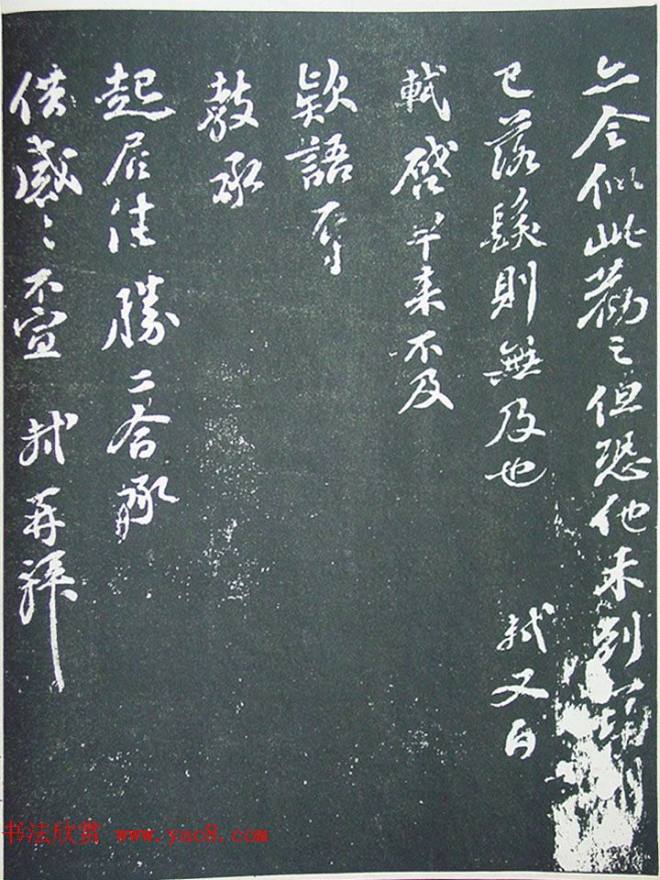 亦令似此勸之但恐他未到
已落髮則無及也 軾又白
軾啓早来不及
款語辱
教承
起居佳勝二合承
借感〻不宣 軾再拜
书法欣赏 www.yac8.com